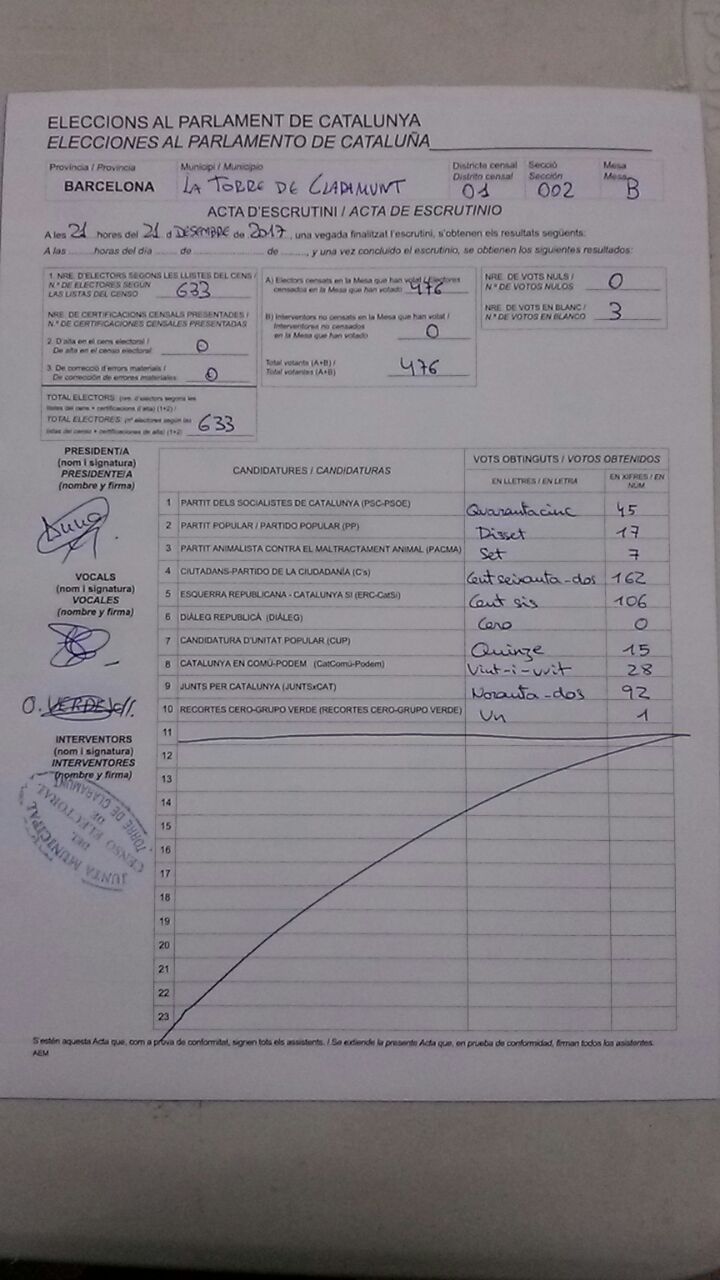 ELECCIONS AL PARLAMENT DE CATALUNYA
ELECCIONES AL PARLAMENTO DE CATALUÑA
Provincia / Provincia
BARCELONA
Municipi / Municipio
LA TORRE DE CLARAMUNT
Districte censal
Distrito censal
01
Secció
Sección
002
Mesa
Mesa
B
ACTA D'ESCRUTINI / ACTA DE ESCRUTINIO
A les 21 hores del 21 d DESEMBRE de 2017, una vegada finalitzat l'escrutini, s'obtenen els resultats següents:
A las ........horas del día ..... de ............... de ........, y una vez concluido el escrutinio, se obtienen los siguientes resultados:
1. NRE. D'ELECTORS SEGONS LES LLISTES DEL CENS /
N.º DE ELECTORES SEGÚN
LAS LISTAS DEL CENSO
633
NRE. DE CERTIFICACIONS CENSALS PRESENTADES /
N.º DE CERTIFICACIONES CENSALES PRESENTADAS
2. D'alta en el cens electoral /
De alta en el censo electoral:
0
3. De correcció d'errors materials /
De corrección de errores materiales:
0
TOTAL ELECTORS: (nre. d'electors segons les
llistes del cens + certificacions d'alta) (1+2) /
TOTAL ELECTORES: (nº electores según las
listas del censo + certificaciones de alta) (1+2)
633
A) Electors censats en la Mesa que han votat / Electores
censados en la Mesa que han votado
476
B) Interventors no censats en la Mesa que han votat /
Interventores no censados
en la Mesa que han votado
0
Total votants (A+B) /
Total votantes (A+B)
476
NRE. DE VOTS NULS /
N.º DE VOTOS NULOS
0
NRE. DE VOTS EN BLANC /
N.º DE VOTOS EN BLANCO
3
PRESIDENT/A
(nom i signatura)
PRESIDENTE/A
(nombre y firma)
Anna
VOCALS
(nom i signatura)
VOCALES
(nombre y firma)
O. VERDEJO
INTERVENTORS
(nom i signatura)
INTERVENTORES
(nombre y firma)
JUNTA MUNICIPAL
DEL
CENSO ELECTORAL
DE
TORRE DE CLARAMUNT
CANDIDATURES / CANDIDATURAS
VOTS OBTINGUTS / VOTOS OBTENIDOS
EN LLETRES / EN LETRA
EN XIFRES / EN NÚM
1 PARTIT DELS SOCIALISTES DE CATALUNYA (PSC-PSOE) Quaranta cinc 45
2 PARTIT POPULAR / PARTIDO POPULAR (PP) Disset 17
3 PARTIT ANIMALISTA CONTRA EL MALTRACTAMENT ANIMAL (PACMA) Set 7
4 CIUTADANS-PARTIDO DE LA CIUDADANÍA (C's) Cent seixanta-dos 162
5 ESQUERRA REPUBLICANA - CATALUNYA SÍ (ERC-CatSí) Cent sis 106
6 DIÀLEG REPUBLICÀ (DIÀLEG) Cero 0
7 CANDIDATURA D'UNITAT POPULAR (CUP) Quinze 15
8 CATALUNYA EN COMÚ-PODEM (CatComú-Podem) Vint-i-vuit 28
9 JUNTS PER CATALUNYA (JUNTSxCAT) Noranta-dos 92
10 RECORTES CERO-GRUPO VERDE (RECORTES CERO-GRUPO VERDE) Un 1
11
12
13
14
15
16
17
18
19
20
21
22
23
S'estén aquesta Acta que, com a prova de conformitat, signen tots els assistents. / Se extiende la presente Acta que, en prueba de conformidad, firman todos los asistentes.
AEM